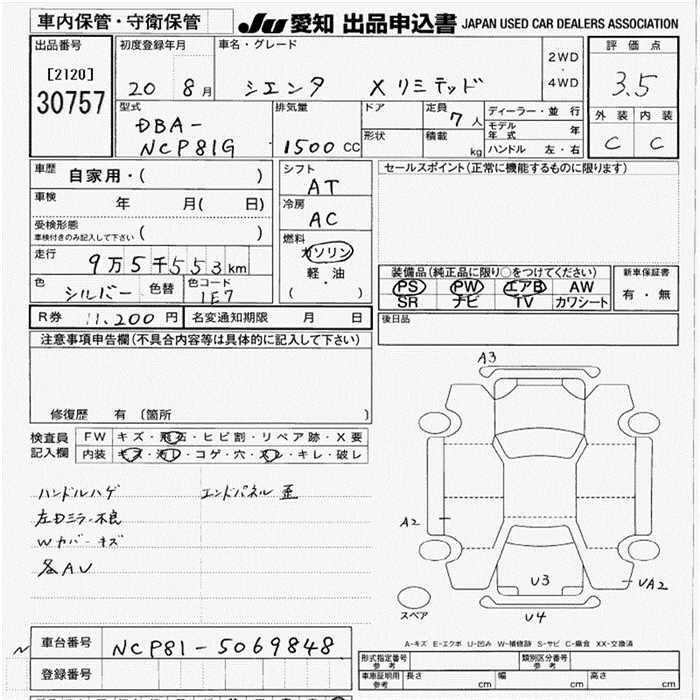 車内保管・守衛保管 JU 愛知 出品申込書 JAPAN USED CAR DEALERS ASSOCIATION
出品番号 初度登録年月 車名・グレード 評価点
[2120] 2WD
30757 20 8月 シエンタ Xリミテッド ・ 3.5
4WD
型式 排気量 ドア 定員 7人 ディーラー・並 行 外装 内装
DBA- モデル年式 年
NCP81G 1500cc 形状 積載 kg ハンドル 左・右 C C
車歴 自家用・( ) シフト セールスポイント(正常に機能するものに限ります)
AT
車検 年 月( 日) 冷房
AC
受検形態
車検付きのみ記入して下さい ( )
燃料
走行 9万5千553km ガソリン 装備品(純正品に限り○をつけてください) 新車保証書
軽・油 PS PW エアB AW 有・無
色 シルバー 色替 色コード 1E7 ( ・ ) SR ナビ TV カワシート
R券 11,200円 名変通知期限 月 日 後日品
注意事項申告欄(不具合内容等は具体的に記入して下さい)
修復歴 有 〔箇所 〕
検査員 FW キズ・飛石・ヒビ割・リペア跡・X要
記入欄 内装 キズ・汚レ・コゲ・穴・スレ・キレ・破レ
ハンドルハゲ エンドパネル歪
左Dミラー不良
Wカバーキズ
各AU
A3
A2
U3
UA2
U4
スペア
A-キズ E-エクボ U-凹み W-補修跡 S-サビ C-腐食 XX-交換済
車台番号 NCP81-5069848
形式指定番号 参考 類別区分番号 参考
登録番号 車庫証明用 参考 長さ cm 幅 cm 高さ cm